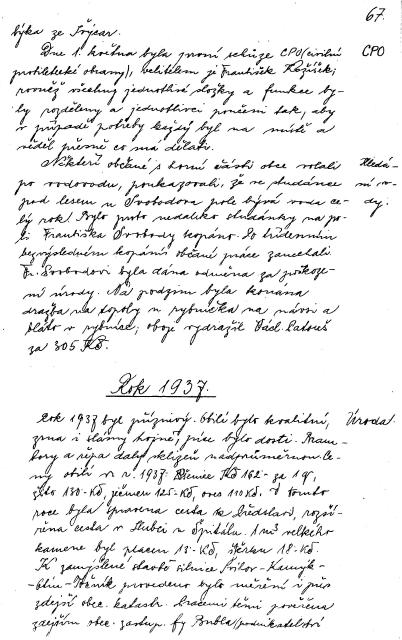 67.
býka ze Švýcar.
Dne 1. května byla první schůze CPO (civilní
CPO
protiletecké obrany), velitelem je František
rovněž všechny jednotlivé složky a funkce by-
ly rozděleny a jednotlivci poučeni tak, aby
v případě potřeby každý byl na místě a
věděl přesně co má dělati.
Někteří občané s horní části obce volali
Hledá-
po vodovodu, poukazovali, že ve studánce
ní vo-
pod lesem u Svobodova pole bývá voda ce-
dy.
lý rok. Bylo proto nedaleko studánky na po-
li Františka Svobody kopáno. Po týdenním
bezvýsledném kopání občané práce zanechali.
Fr. Svobodovi byla dána odměna za poškoze-
ní úrody. Na podzim byla konána
dražba na topoly u rybníčka na návsi a
bláto v rybníce; oboje vydražil Václ. Latouš
za 305 Kč.
Rok 1937.
Rok 1937 byl příznivý. Obilí bylo kvalitní,
Úroda.
zrna i slámy hojně, píce bylo dosti. Bram-
bory a řepa daly sklizeň nadprůměrnou. Ce-
ny obilí v r. 1937. Pšenice Kč 162- za 1 q,
žito 130- Kč, ječmen 125- Kč, oves 110 Kč. V tomto
roce byla spravena cesta ke rozší-
řena cesta v Hlubči u Špitálu. 1 m3 velkého
kamene byl placen 13- Kč, štěrku 18- Kč.
K zamýšlené stavbě silnice
provedeno bylo měření i přes
zdejší obec. katastr. Pracemi těmi pověřena
zdejším obec. zastup. fy Bubla (podnikatelství